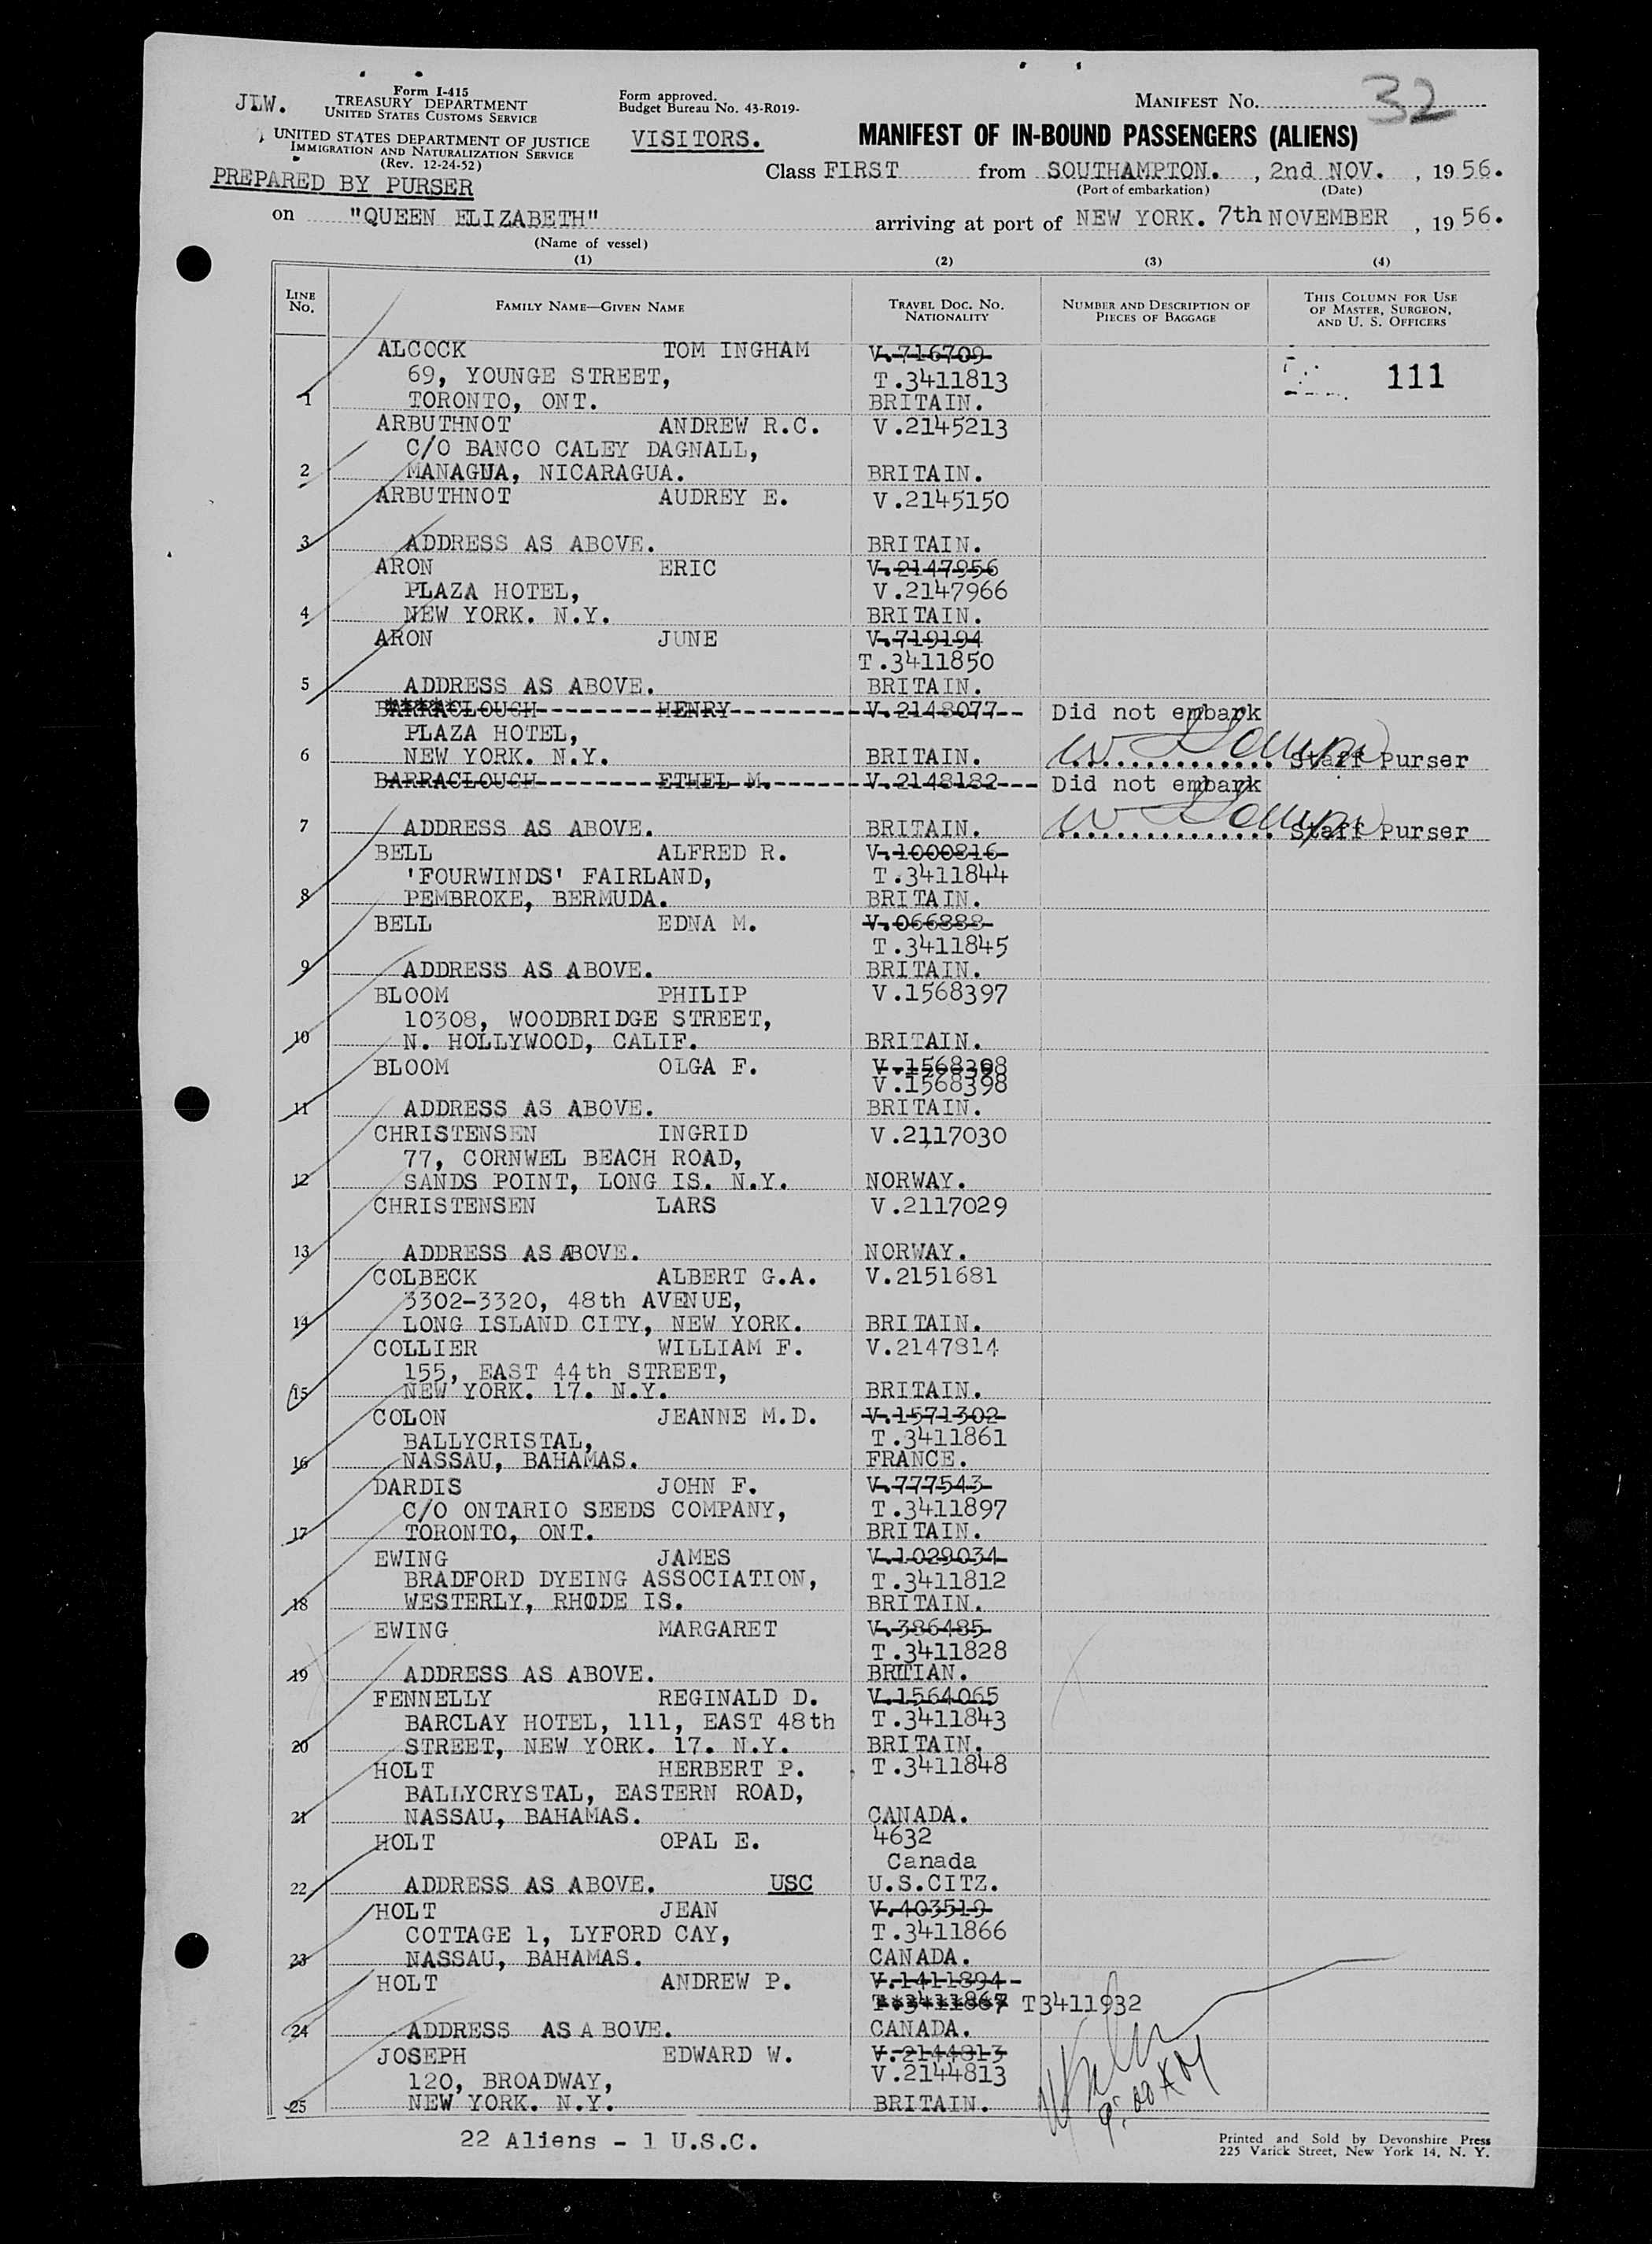 JLW.
Form I-415
TREASURY DEPARTMENT
UNITED STATES CUSTOMS SERVICE
UNITED STATES DEPARTMENT OF JUSTICE
IMMIGRATION AND NATURALIZATION SERVICE
(Rev. 12-24-52)
PREPARED BY PURSER
Form approved.
Budget Bureau No. 43-R019-
VISITORS.
MANIFEST No. 32
MANIFEST OF IN-BOUND PASSENGERS (ALIENS)
Class FIRST from SOUTHAMPTON. , 2nd NOV. , 19 56.
(Port of embarkation) (Date)
on "QUEEN ELIZABETH" arriving at port of NEW YORK. 7th NOVEMBER , 19 56.
(Name of vessel)
(1) (2) (3) (4)
LINE No. FAMILY NAME—GIVEN NAME TRAVEL DOC. No. NATIONALITY NUMBER AND DESCRIPTION OF PIECES OF BAGGAGE THIS COLUMN FOR USE OF MASTER, SURGEON, AND U. S. OFFICERS
ALCOCK TOM INGHAM V.716709
69, YOUNGE STREET, T.3411813 111
1 TORONTO, ONT. BRITAIN.
ARBUTHNOT ANDREW R.C. V.2145213
C/O BANCO CALEY DAGNALL,
2 MANAGUA, NICARAGUA. BRITAIN.
ARBUTHNOT AUDREY E. V.2145150
3 ADDRESS AS ABOVE. BRITAIN.
ARON ERIC V.2147956
PLAZA HOTEL, V.2147966
4 NEW YORK. N.Y. BRITAIN.
ARON JUNE V.719194
T.3411850
5 ADDRESS AS ABOVE. BRITAIN.
BARRACLOUGH HENRY V.2148077 Did not embark
PLAZA HOTEL,
6 NEW YORK. N.Y. BRITAIN. Staff Purser
BARRACLOUGH ETHEL M. V.2148182 Did not embark
7 ADDRESS AS ABOVE. BRITAIN. Staff Purser
BELL ALFRED R. V.1000816
'FOURWINDS' FAIRLAND, T.3411844
8 PEMBROKE, BERMUDA. BRITAIN.
BELL EDNA M. V.066888
T.3411845
9 ADDRESS AS ABOVE. BRITAIN.
BLOOM PHILIP V.1568397
10308, WOODBRIDGE STREET,
10 N. HOLLYWOOD, CALIF. BRITAIN.
BLOOM OLGA F. V.1568398
V.1568398
11 ADDRESS AS ABOVE. BRITAIN.
CHRISTENSEN INGRID V.2117030
77, CORNWEL BEACH ROAD,
12 SANDS POINT, LONG IS. N.Y. NORWAY.
CHRISTENSEN LARS V.2117029
13 ADDRESS AS ABOVE. NORWAY.
COLBECK ALBERT G.A. V.2151681
3302-3320, 48th AVENUE,
14 LONG ISLAND CITY, NEW YORK. BRITAIN.
COLLIER WILLIAM F. V.2147814
155, EAST 44th STREET,
15 NEW YORK. 17. N.Y. BRITAIN.
COLON JEANNE M.D. V.1571302
BALLYCRISTAL, T.3411861
16 NASSAU, BAHAMAS. FRANCE.
DARDIS JOHN F. V.777543
C/O ONTARIO SEEDS COMPANY, T.3411897
17 TORONTO, ONT. BRITAIN.
EWING JAMES V.1029034
BRADFORD DYEING ASSOCIATION, T.3411812
18 WESTERLY, RHODE IS. BRITAIN.
EWING MARGARET V.386485
T.3411828
19 ADDRESS AS ABOVE. BRITIAN.
FENNELLY REGINALD D. V.1564065
BARCLAY HOTEL, 111, EAST 48th T.3411843
20 STREET, NEW YORK. 17. N.Y. BRITAIN.
HOLT HERBERT P. T.3411848
BALLYCRYSTAL, EASTERN ROAD,
21 NASSAU, BAHAMAS. CANADA.
HOLT OPAL E. 4632
Canada
22 ADDRESS AS ABOVE. USC U.S.CITZ.
HOLT JEAN V.403519
COTTAGE 1, LYFORD CAY, T.3411866
23 NASSAU, BAHAMAS. CANADA.
HOLT ANDREW P. V.1411894
T.3411867 T3411932
24 ADDRESS AS A BOVE. CANADA.
JOSEPH EDWARD W. V.2144813
120, BROADWAY, V.2144813
25 NEW YORK. N.Y. BRITAIN.
9:00 AM
22 Aliens - 1 U.S.C.
Printed and Sold by Devonshire Press
225 Varick Street, New York 14, N. Y.